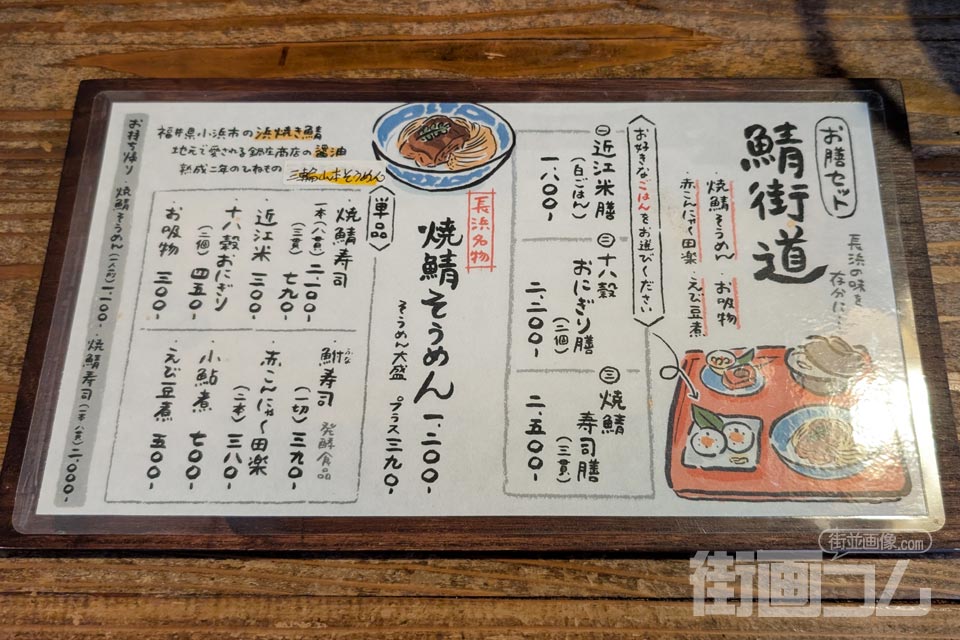 お膳セット
鯖街道
長浜の味を
存分に…
・焼鯖そうめん ・お吸物
・赤こんにゃく田楽 ・えび豆煮
お好きなごはんをお選びください
一 近江米膳
(白ごはん)
一、八〇〇-
二 十八穀
おにぎり膳
(二個)
二、二〇〇-
三 焼鯖
寿司膳
(三貫)
二、五〇〇-
長浜名物
焼鯖そうめん 一、二〇〇-
そうめん大盛 プラス三九〇-
福井県小浜市の浜焼き鯖
地元で愛される鍋庄商店の醤油
熟成二年のひねもの 三輪山本そうめん
単品
・焼鯖寿司
一本(八貫) 二、一〇〇-
(三貫) 七九〇-
・近江米 三〇〇-
・十八穀おにぎり
(二個) 四五〇-
・お吸物 三〇〇-
・鮒寿司 発酵食品
ふな
(一切) 三九〇-
・赤こんにゃく田楽
(二本) 三八〇-
・小鮎煮 七〇〇-
・えび豆煮 五〇〇-
お持ち帰り ・焼鯖そうめん(一人前) 一、一〇〇- ・焼鯖寿司(一本八貫) 二、〇〇〇-
街並画像.com
街画コム